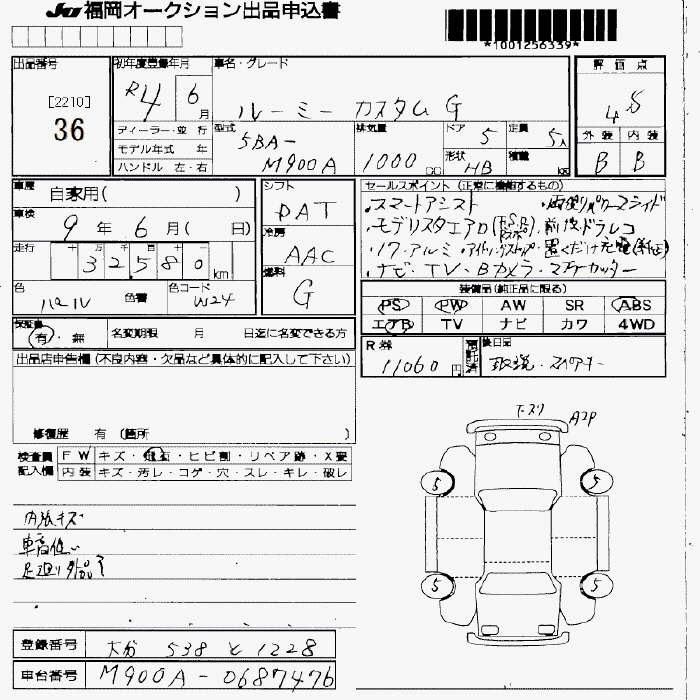 JU 福岡オークション出品申込書
*1001256339*
出品番号
[2210]
36
初年度登録年月
R4 6月
車名・グレード
ルーミー カスタム G
評価点
4.5
外装 内装
B B
ディーラー・並行
モデル年式 年
ハンドル 左・右
型式
5BA-
M900A
排気量
1000 CC
ドア 5
形状 HB
定員 5人
積載 kg
車歴 自家用( )
車検 9年 6月( 日)
走行 十 万 千 百 十 一
32,580 km
色 パール 色替
色コード W24
シフト
DAT
冷房
AAC
燃料
G
セールスポイント (正常に機能するもの)
・スマートアシスト ・両側パワースライド
・モデリスタエアロ(F.S.R) ・前後ドラレコ
・アルミ・アイドリングストップ・置くだけ充電(純正)
・ナビ・TV・Bカメラ・マチャカッター
装備品(純正品に限る)
PS PW AW SR ABS
エアB TV ナビ カワ 4WD
保証書
有・無
名変期限 月 日迄に名変できる方
R券
11060円
預託済
後日品
取説・スペアキー
出品店申告欄 (不良内容・欠品など具体的に記入して下さい)
修復歴 有 (箇所 )
検査員記入欄
FW キズ・飛石・ヒビ割・リペア跡・X要
内装 キズ・汚レ・コゲ・穴・スレ・キレ・破レ
内張キズ
車高低い
足廻り外品
F-スリ A2P
5 5
5 5
登録番号 大分 538 と 1228
車台番号 M900A-0687476